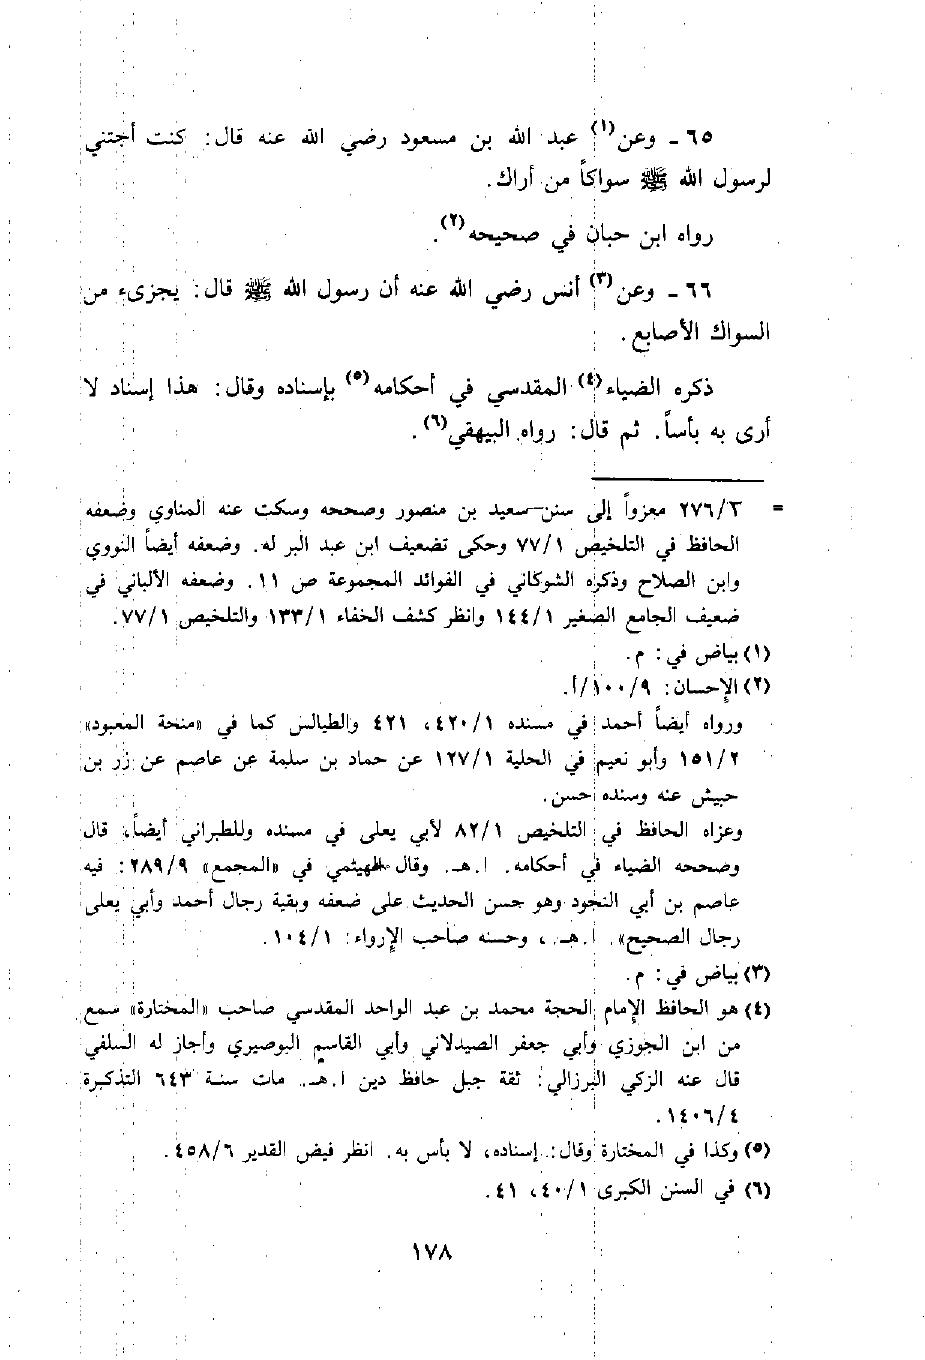 ٦٥ ـ وعن(١) عبد الله بن مسعود رضي الله عنه قال: كنت أجتني
لرسول الله ﷺ سواكاً من أراك.
رواه ابن حبان في صحيحه(٢).
٦٦ ـ وعن(٣) أنس رضي الله عنه أن رسول الله ﷺ قال: يجزىء من
السواك الأصابع.
ذكره الضياء(٤) المقدسي في أحكامه(٥) بإسناده وقال: هذا إسناد لا
أرى به بأساً. ثم قال: رواه البيهقي(٦).
= ٢٧٦/٣ معزواً إلى سنن سعيد بن منصور وصححه وسكت عنه المناوي وضعفه
الحافظ في التلخيص ٧٧/١ وحكى تضعيف ابن عبد البر له. وضعفه أيضاً النووي
وابن الصلاح وذكره الشوكاني في الفوائد المجموعة ص ١١. وضعفه الألباني في
ضعيف الجامع الصغير ١٤٤/١ وانظر كشف الخفاء ١٣٣/١ والتلخيص ٧٧/١.
(١) بياض في: م.
(٢) الإحسان: ١٠٠/٩/أ.
ورواه أيضاً أحمد في مسنده ٤٢٠/١، ٤٢١ والطيالس كما في «منحة المعبود»
١٥١/٢ وأبو نعيم في الحلية ١٢٧/١ عن حماد بن سلمة عن عاصم عن زر بن
حبيش عنه وسنده حسن.
وعزاه الحافظ في التلخيص ٨٢/١ لأبي يعلى في مسنده وللطبراني أيضاً، قال
وصححه الضياء في أحكامه. ا.هـ. وقال الهيثمي في «المجمع» ٢٨٩/٩: فيه
عاصم بن أبي النجود وهو حسن الحديث على ضعفه وبقية رجال أحمد وأبي يعلى
رجال الصحيح». ا.هـ.، وحسنه صاحب الإرواء: ١٠٤/١.
(٣) بياض في: م.
(٤) هو الحافظ الإمام الحجة محمد بن عبد الواحد المقدسي صاحب «المختارة» سمع
من ابن الجوزي وأبي جعفر الصيدلاني وأبي القاسم البوصيري وأجاز له السلفي
قال عنه الزكي البرزالي: ثقة جبل حافظ دين ا.هـ. مات سنة ٦٤٣ التذكرة
١٤٠٦/٤.
(٥) وكذا في المختارة وقال: إسناده، لا بأس به. انظر فيض القدير ٤٥٨/٦.
(٦) في السنن الكبرى ٤٠/١، ٤١.
١٧٨